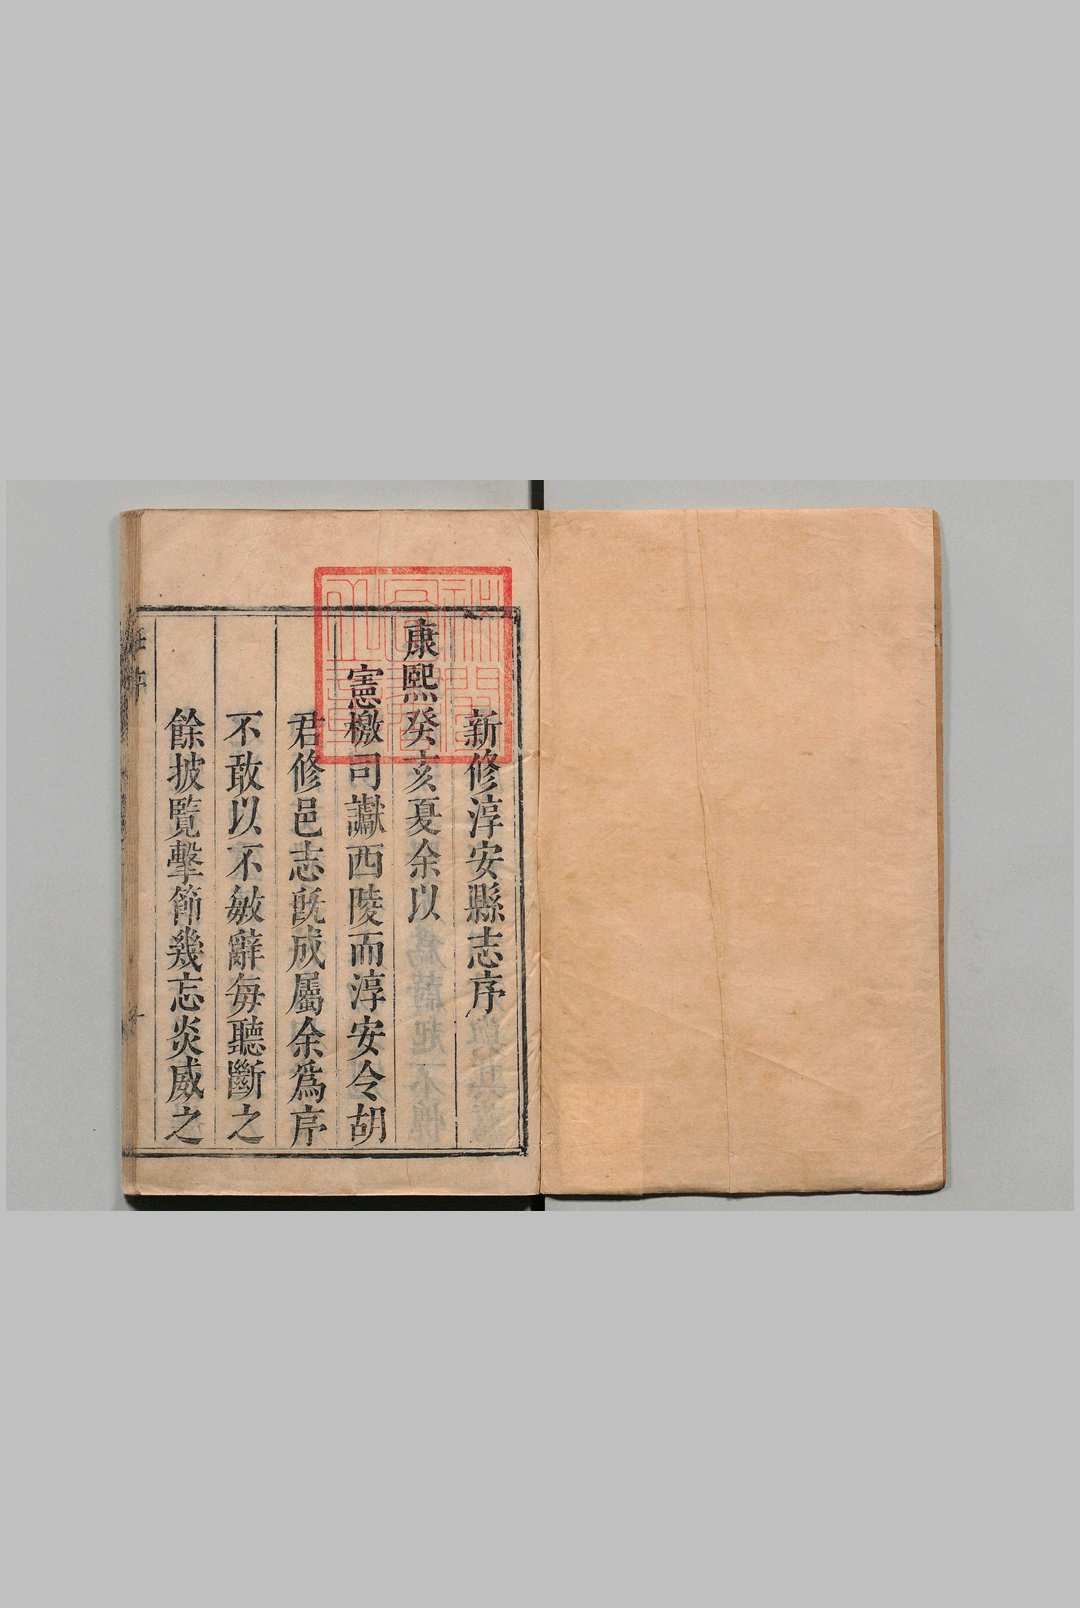 新修淳安縣志序
康熙癸亥夏余以
憲檄司讞西陵而淳安令胡
君修邑志旣成屬余爲序
不敢以不敏辭每聽斷之
餘披覽擊節幾忘炎威之